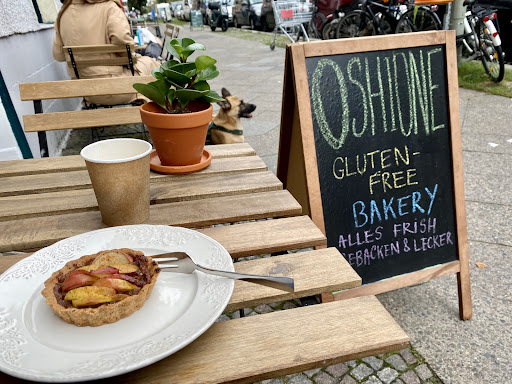 OSHIONE
GLUTEN-
FREE
BAKERY
ALLES FRISH
GEBACKEN & LECKER